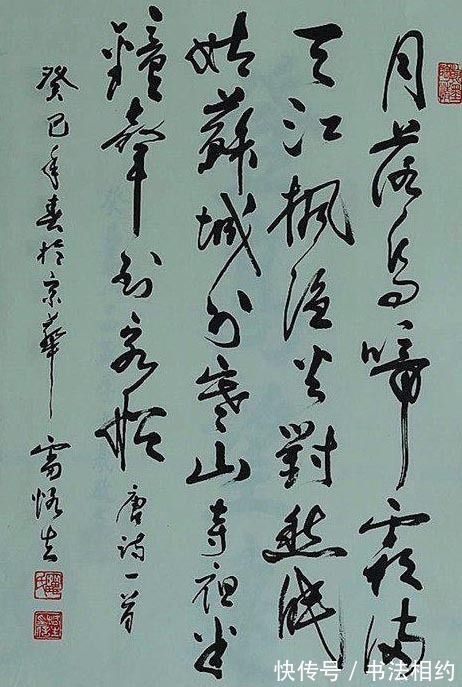 月落烏啼霜滿
天江楓漁火對愁眠
姑蘇城外寒山寺夜半
鐘聲到客船 唐詩一首
癸巳年春於京華 雷恪生
快传号 / 书法相约